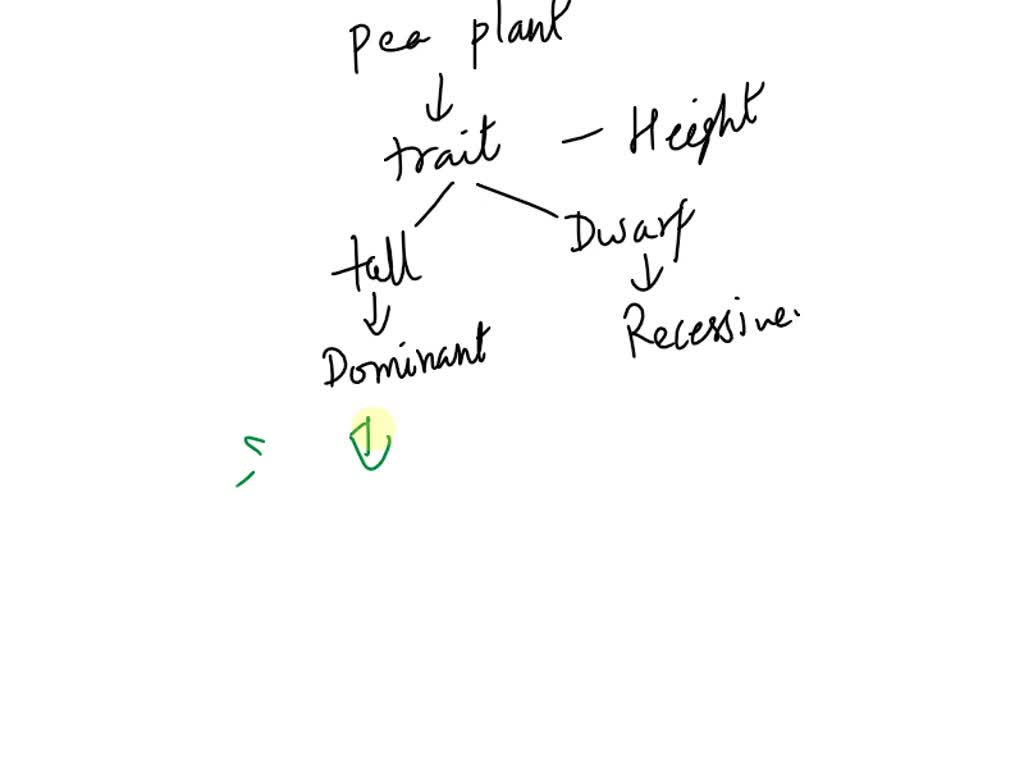 Pea plant
trait - Height
tall Dwarf
Dominant Recessive.